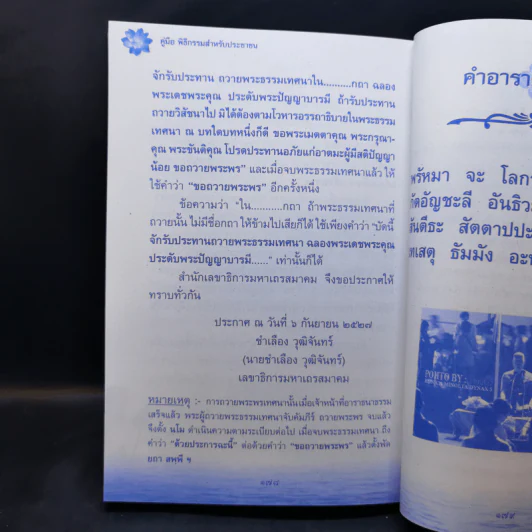 คู่มือ พิธีกรรมสำหรับประชาชน
จักรับประทาน ถวายพระธรรมเทศนาใน..........กถา ฉลอง
พระเดชพระคุณ ประดับพระปัญญาบารมี ถ้ารับประทาน
ถวายวิสัชนาไป มิได้ต้องตามโวหารอรรถาธิบายในพระธรรม
เทศนา ณ บทใดบทหนึ่งก็ดี ขอพระเมตตาคุณ พระกรุณา-
คุณ พระขันติคุณ โปรดประทานอภัยแก่อาตมะผู้มีสติปัญญา
น้อย ขอถวายพระพร” และเมื่อจบพระธรรมเทศนาแล้ว ให้
ใช้คำว่า “ขอถวายพระพร” อีกครั้งหนึ่ง
ข้อความว่า “ใน..........กถา ถ้าพระธรรมเทศนาที่
ถวายนั้น ไม่มีชื่อกถา ให้ข้ามไปเสียก็ได้ ใช้เพียงคำว่า “บัดนี้
จักรับประทานถวายพระธรรมเทศนา ฉลองพระเดชพระคุณ
ประดับพระปัญญาบารมี......” เท่านั้นก็ได้
สำนักเลขาธิการมหาเถรสมาคม จึงขอประกาศให้
ทราบทั่วกัน
ประกาศ ณ วันที่ ๖ กันยายน ๒๕๒๗
ชำเลือง วุฒิจันทร์
(นายชำเลือง วุฒิจันทร์)
เลขาธิการมหาเถรสมาคม
หมายเหตุ :- การถวายพระพรเทศนานั้นเมื่อเจ้าหน้าที่อาราธนาธรรม
เสร็จแล้ว พระผู้ถวายพระธรรมเทศนาจับคัมภีร์ ถวายพระพร จบแล้ว
จึงตั้ง นโม ดำเนินความตามระเบียบต่อไป เมื่อจบพระเทศนา ถึง
คำว่า “ด้วยประการฉะนี้” ต่อด้วยคำว่า “ขอถวายพระพร” แล้วตั้งพัด
ยถา สพฺพี ฯ
๑๗๘
คำอารา
พรัหมา จะ โลกา
กัตอัญชะลี อันธิว
สันตีธะ สัตตาปปะ
ทเสตุ ธัมมัง อะ
PORTO BY :
๑๗๙